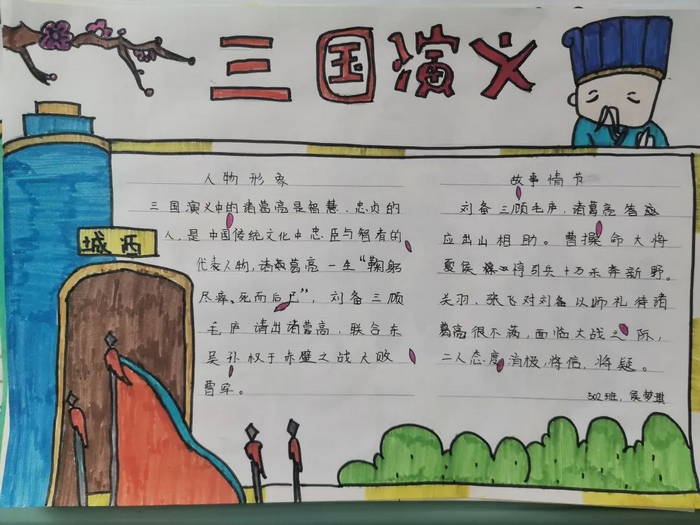 三国演义
人物形象
三国演义中的诸葛亮是智慧、忠贞的
人,是中国传统文化中忠臣与智者的
代表人物,诸葛亮一生“鞠躬
尽瘁、死而后已”,刘备三顾
毛庐请出诸葛亮,联合东
吴孙权于赤壁之战大败
曹军。
故事情节
刘备三顾毛庐,诸葛亮答应
应出山相助。曹操命大将
夏侯惇引兵十万杀奔新野。
关羽、张飞对刘备以师礼待诸
葛亮很不满,面临大战之际,
二人态度消极,将信,将疑。
302班,吴梦琪
城西